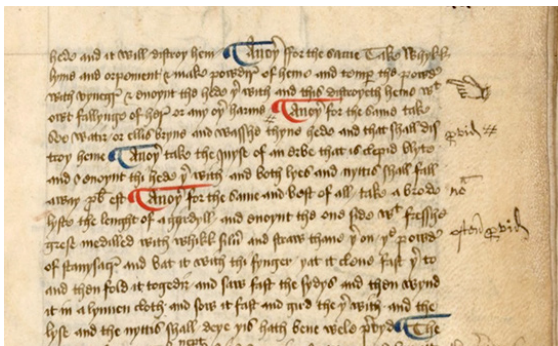 hede and it will distroy hem Anoyr ffor the same Take whykk
lyme and orpement & make powdyr of heme and tempr the powdr
with vynegr & enoynt the hede yr with and this distroyeth heme wt
owt fallynge of her or any oyr harme Anoyr for the same take
See watir or ellis bryne and wasshe thyne hede and that shall dis
troy heme Anoyr take the juyse of an erbe that is clepid blyto
and enoynt thi hede yr with and both lyes and nyttis shall fall
away pb est Anoyr for the same and best of all take a brode
lyste the lenght of a gyrdyll and enoynt the one side wt fresshe
grese medilled with whikk silur and straw thane yr on ye powdr
of stavysagr and bat it with thi fynger yat it cleve fast yr to
and then fold it togedir and saw fast the sydys and then wynd
it in a lynnen cloth and sow it fast and gird the yr with and the
lyse and the nyttis shall deye yis hath bene wele prevyd The